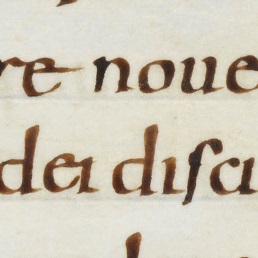 re noue
dei discu